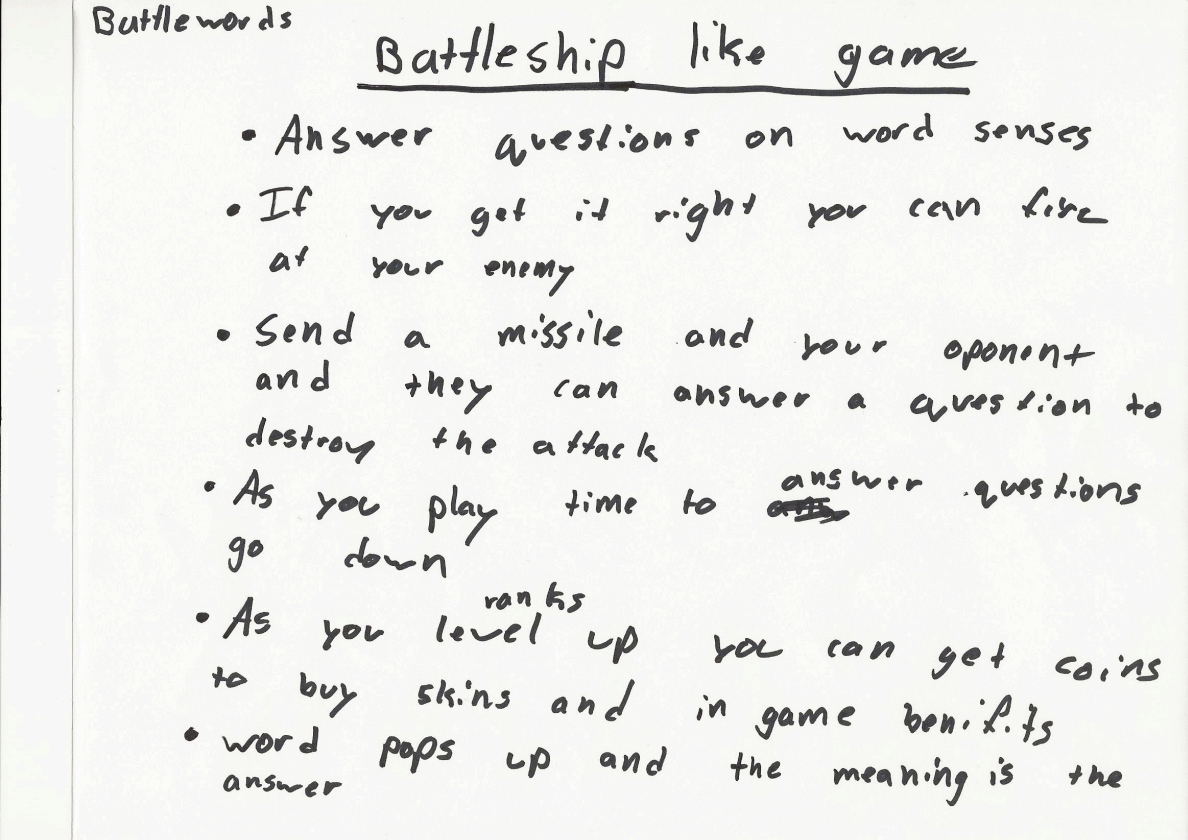 Battlewords
Battleship like game
• Answer questions on word senses
• If you get it right you can fire
at your enemy
• Send a missile and your oponent
and they can answer a question to
destroy the attack
• As you play time to answer questions
go down
ranks
• As you level up you can get coins
to buy skins and in game benifits
• word pops up and the meaning is the
answer